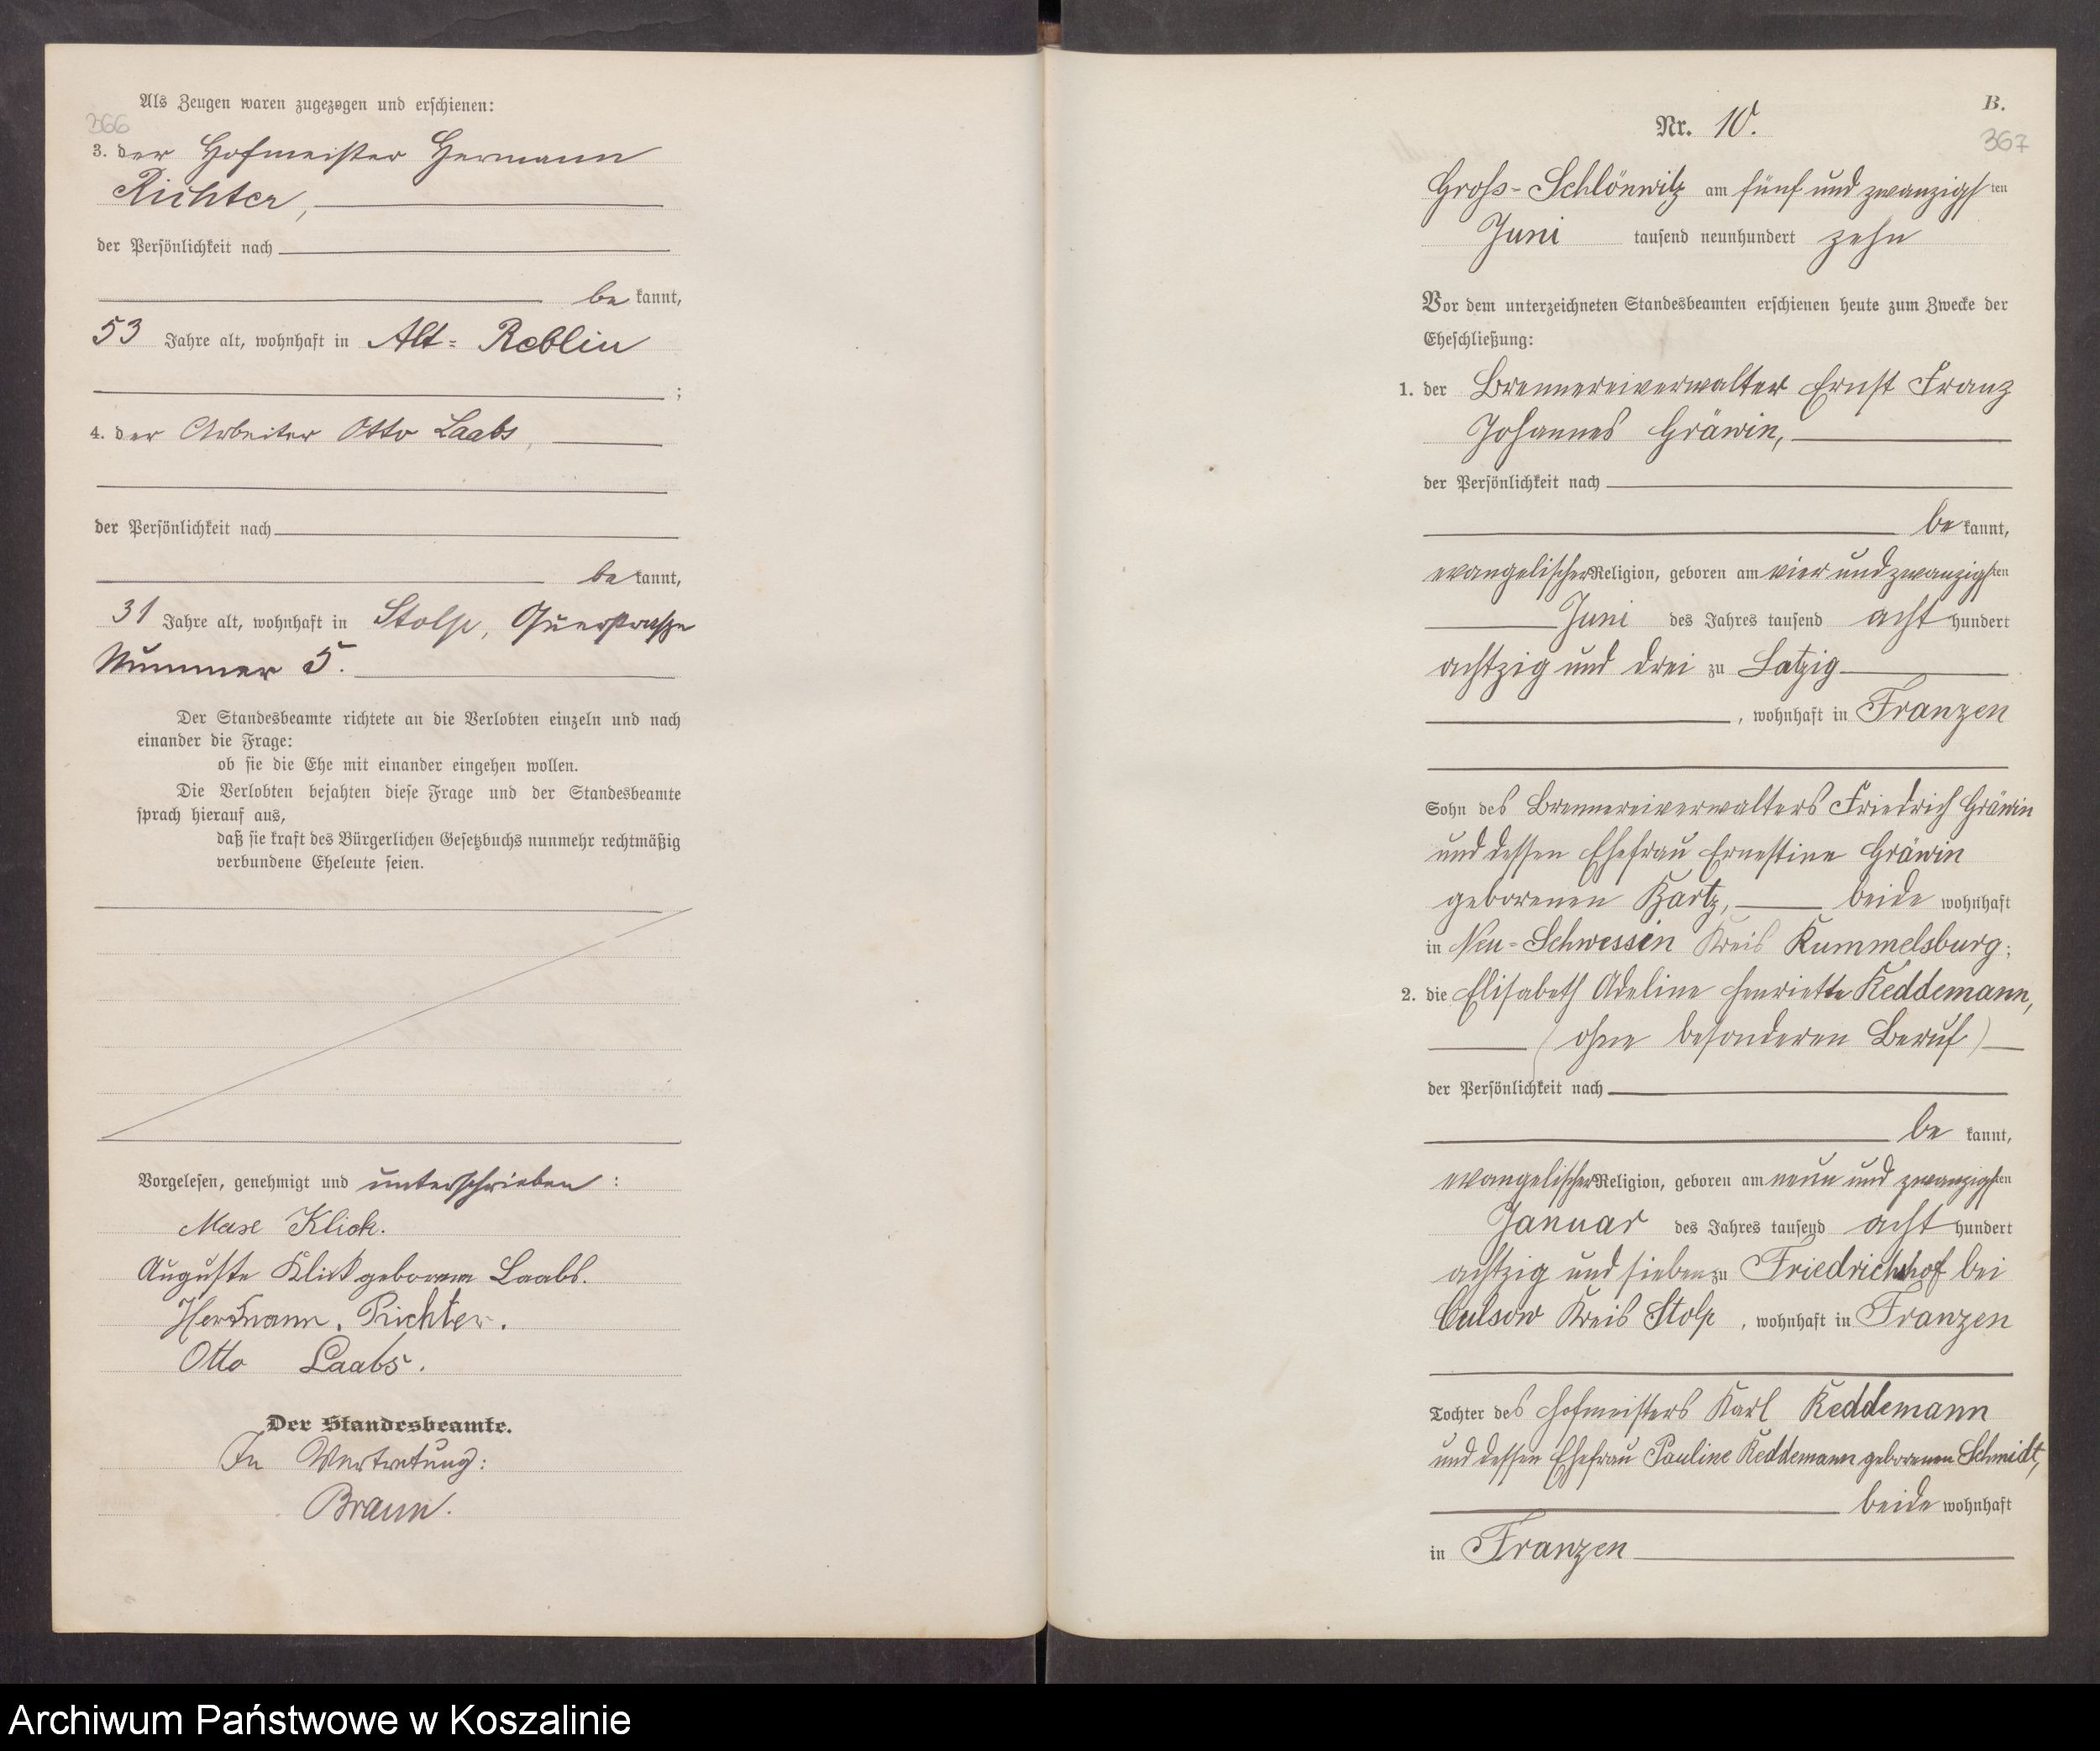 Als Zeugen waren zugezogen und erschienen:
366
3. der Hofmeister Hermann
Richter,
der Persönlichkeit nach
be kannt,
53 Jahre alt, wohnhaft in Alt-Reblin
;
4. der Arbeiter Otto Laabs,
der Persönlichkeit nach
be kannt,
31 Jahre alt, wohnhaft in Stolp, Querstraße
Nummer 5.
Der Standesbeamte richtete an die Verlobten einzeln und nach
einander die Frage:
ob sie die Ehe mit einander eingehen wollen.
Die Verlobten bejahten diese Frage und der Standesbeamte
sprach hierauf aus,
daß sie kraft des Bürgerlichen Gesetzbuchs nunmehr rechtmäßig
verbundene Eheleute seien.
Vorgelesen, genehmigt und unterschrieben:
Klick.
Auguste Klick geborene Laabs.
Hermann. Richter.
Otto Laabs.
Der Standesbeamte.
In Vertretung:
Braun.
B.
Nr. 10.
367
Groß-Schlönwitz am fünf und zwanzigsten
Juni tausend neunhundert zehn
Vor dem unterzeichneten Standesbeamten erschienen heute zum Zwecke der
Eheschließung:
1. der Brennereiverwalter Ernst Franz
Johannes Gräwin,
der Persönlichkeit nach
be kannt,
evangelischer Religion, geboren am vier und zwanzigsten
Juni des Jahres tausend acht hundert
achtzig und drei zu Latzig
, wohnhaft in Franzen
Sohn des Brennereiverwalters Friedrich Gräwin
und dessen Ehefrau Ernestine Gräwin
geborenen Kartz, beide wohnhaft
in Neu-Schwessin Kreis Rummelsburg;
2. die Elisabeth Adeline Henriette Keddemann,
(ohne besonderen Beruf)
der Persönlichkeit nach
be kannt,
evangelischer Religion, geboren am neun und zwanzigsten
Januar des Jahres tausend acht hundert
achtzig und sieben zu Friedrichshof bei
Culsow Kreis Stolp, wohnhaft in Franzen
Tochter des Hofmeisters Karl Keddemann
und dessen Ehefrau Pauline Keddemann geborenen Schmidt,
beide wohnhaft
in Franzen
Archiwum Państwowe w Koszalinie